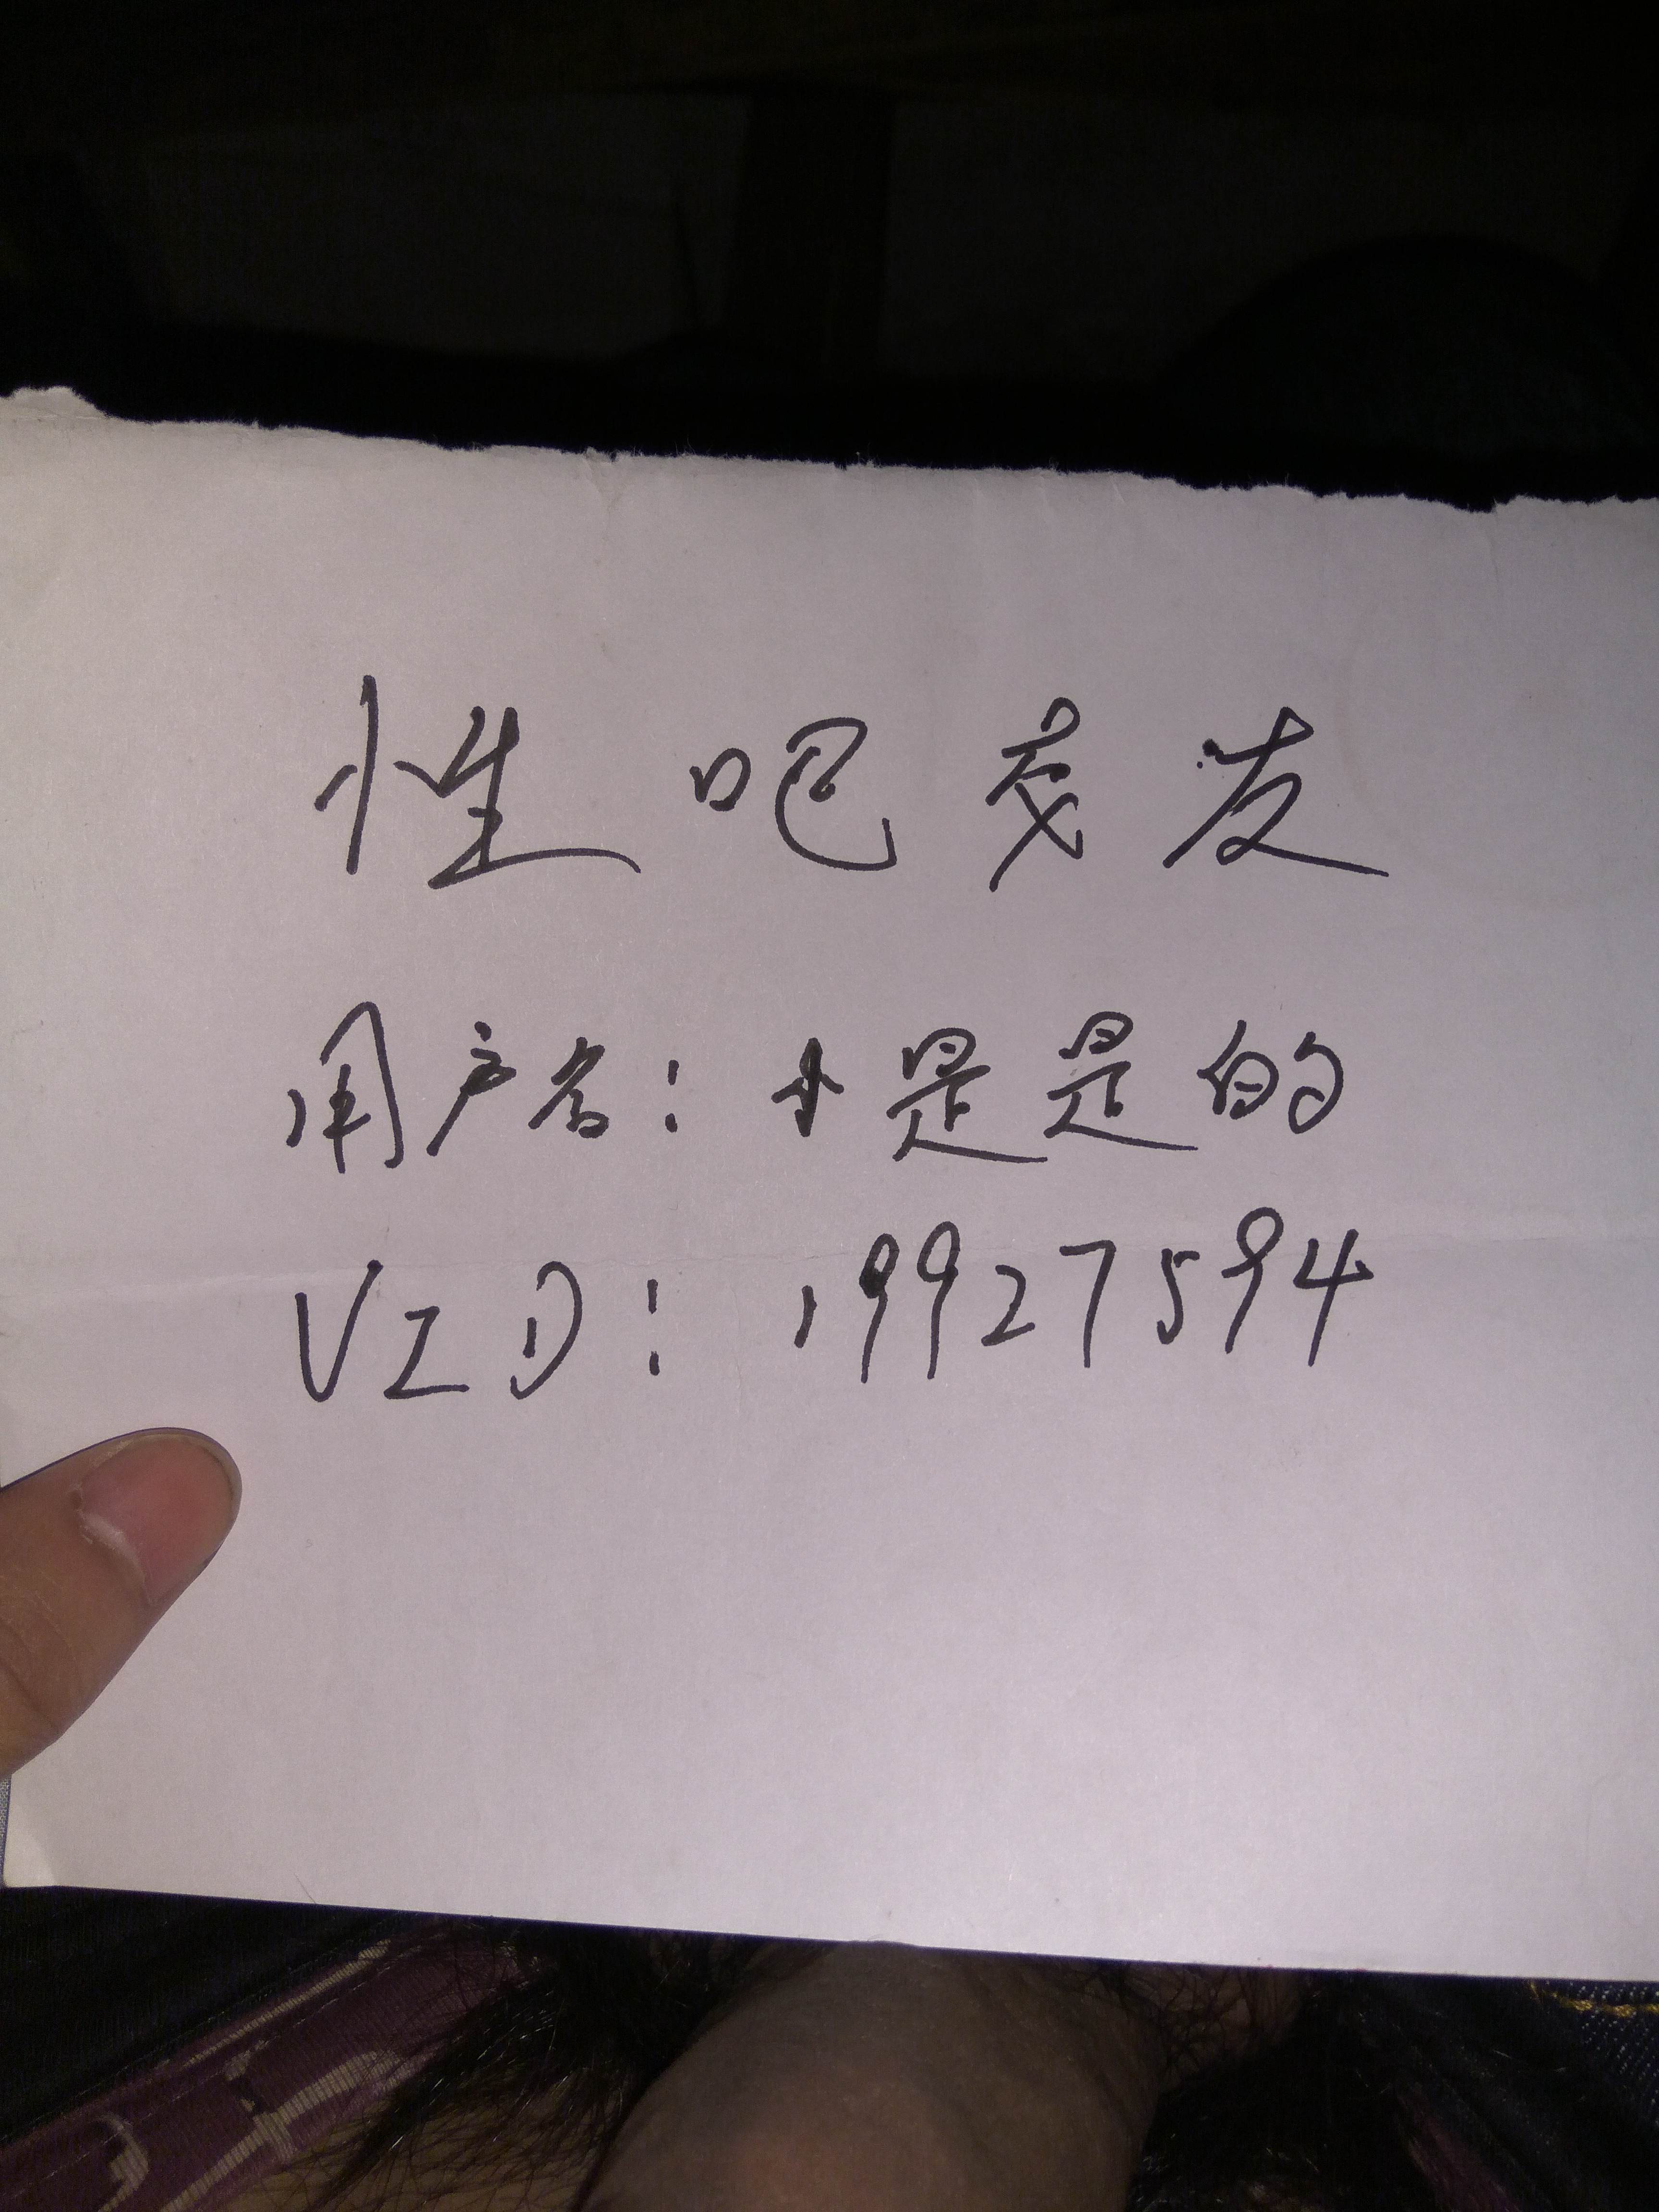 性吧交友
用户名：小是是的
VID：19927594